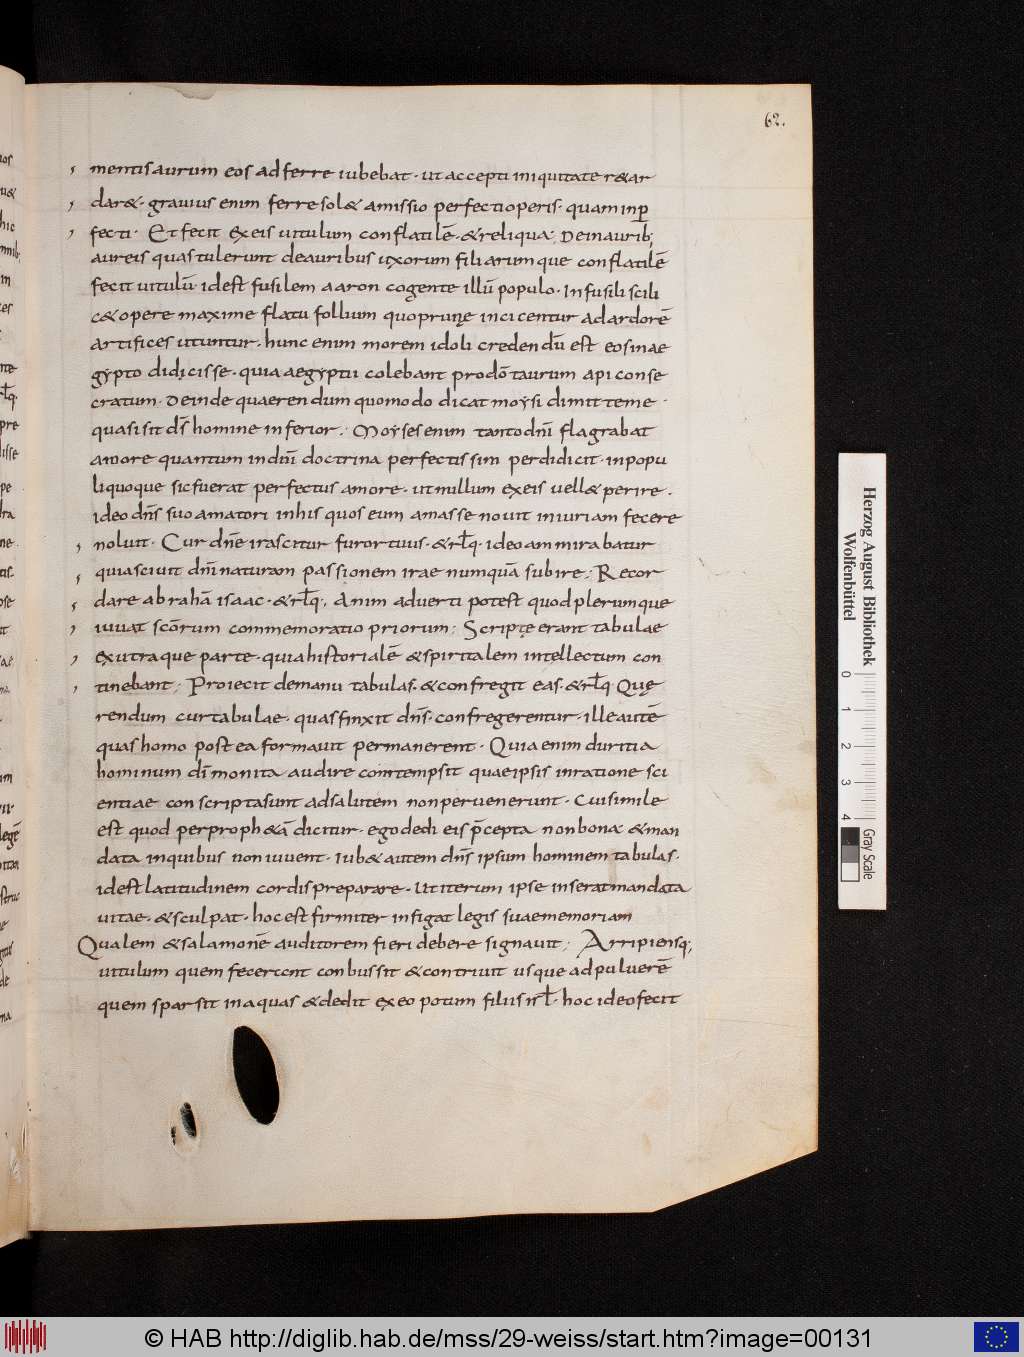 62.
mentis aurum eos adferre iubebat · ut accepti iniquitate r&ar
dar& · gravius enim ferre sol& amissio perfecti operis · quam inp̄
fecti · Et fecit exeis vitulum conflatilē · & reliqua ; Deinaurib;
aureis quas tulerunt deauribus uxorum filiarumque conflatilē
fecit vitulū · idest fusilem aaron cogente illū populo · Infusili scili
c& opere maxime flatu follium quo prunę incicentur ad ardorē
artifices utuntur · hunc enim morem idoli credendū est eos inae
gypto didicisse · quia aegyptii colebant prodō taurum api conse
cratum · Deinde quaerendum quomodo dicat moysi dimitteme ·
quasi sit dr̄ homine inferior ; Moyses enim tanto dn̄i flagrabat
amore quantum indn̄i doctrina perfectissim perdidicit · inpopu
liquoque sic fuerat perfectus amore · ut nullum exeis vell& perire ·
ideo dn̄s suo amatori inhis quos eum amasse novit iniuriam fecere
noluit · Cur dn̄e irascitur furor tuus · & rłq · ideo ammirabatur
quia sciuit dn̄i naturam passionem irae numquā subire ; Recor
dare abrahā isaac · & rłq · Anim adverti potest quod plerumque
iuuat scōrum commemoratio priorum ; Scripte erant tabulae
exutraque parte · quia historialē & spiritalem intellectum con
tinebant ; Proiecit demanu tabulas · & confregit eas · & rłq · Quę
rendum cur tabulae · quas finxit dn̄s · confregerentur · ille autē
quas homo postea formavit permanerent · Quia enim duritia
hominum dī monita audire contempsit quae ipsis inratione sci
entiae conscripta sunt ad salutem non pervenerunt · Cui simile
est quod perproph&ā dicitur · ego dedi eis p̄cepta non bona & man
data inquibus non iuuent · Iub& autem dn̄s ipsum hominem tabulas ·
idest latitudinem cordis preparare · ut iterum ipse inserat mandata
vitae · & sculpat · hoc est firmiter infigat legis suae memoriam
Qualem & salamonē auditorem fieri debere signavit ; Arripiensq;
vitulum quem fecerent conbussit & contrivit usque ad pulverē
quem sparsit inaquas & dedit exeo potum filiis isł · hoc ideo fecit
Herzog August Bibliothek
Wolfenbüttel
0 1 2 3 4
Gray Scale
© HAB http://diglib.hab.de/mss/29-weiss/start.htm?image=00131